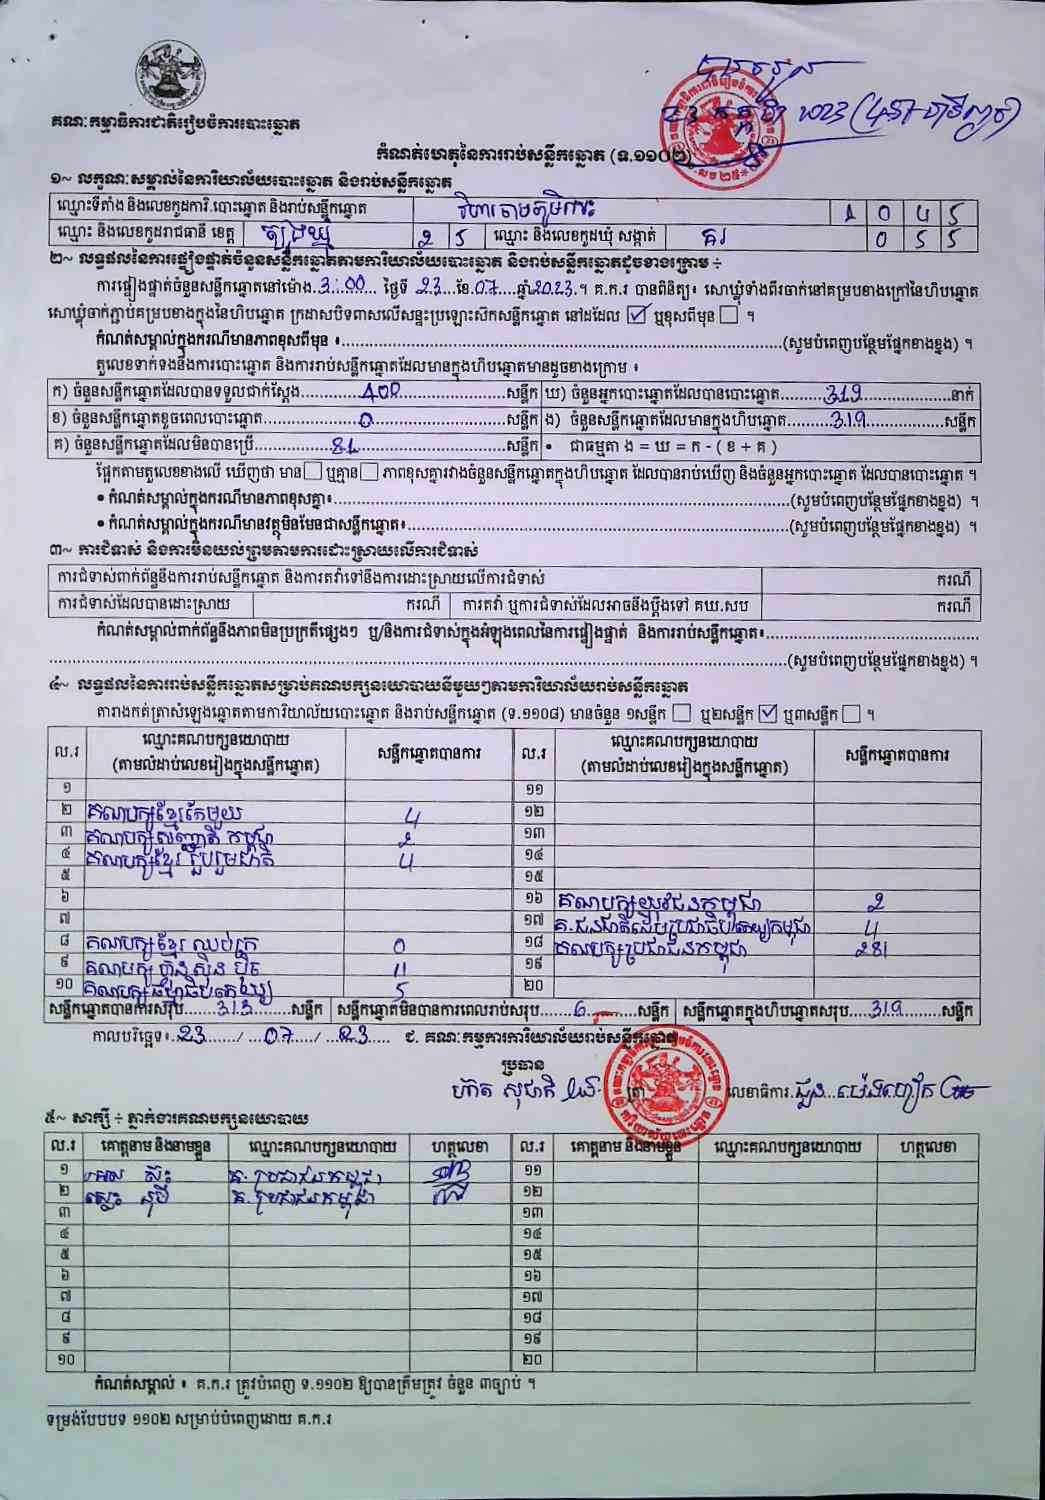 គណៈកម្មាធិការជាតិរៀបចំការបោះឆ្នោត
កំណត់ហេតុនៃការរាប់សន្លឹកឆ្នោត (ទ.១១០២)
១~ លក្ខណៈសម្គាល់នៃការិយាល័យបោះឆ្នោត និងរាប់សន្លឹកឆ្នោត
ឈ្មោះទីតាំង និងលេខកូដការិ.បោះឆ្នោត និងរាប់សន្លឹកឆ្នោត 1 0 4 5
ឈ្មោះ និងលេខកូដរាជធានី ខេត្ត ត្បូងឃ្មុំ 2 5 ឈ្មោះ និងលេខកូដឃុំ សង្កាត់ គរ 0 5 5
២~ លទ្ធផលនៃការផ្ទៀងផ្ទាត់ចំនួនសន្លឹកឆ្នោតតាមការិយាល័យបោះឆ្នោត និងរាប់សន្លឹកឆ្នោតដូចខាងក្រោម ÷
ការផ្ទៀងផ្ទាត់ចំនួនសន្លឹកឆ្នោតនៅម៉ោង.3:00 ថ្ងៃទី 23 ខែ.07 ឆ្នាំ2023.។ គ.ក.រ បានពិនិត្យ៖ សោឃ្លុំទាំងពីរចាក់នៅគម្របខាងក្រៅនៃហិបឆ្នោត
សោឃ្លុំចាក់ភ្ជាប់គម្របខាងក្នុងនៃហិបឆ្នោត ក្រដាសបិទពាសលើសន្ទះប្រឡោះសិកសន្លឹកឆ្នោត នៅដដែល ☑ ឬខុសពីមុន ☐ ។
កំណត់សម្គាល់ក្នុងករណីមានភាពខុសពីមុន ៖ (សូមបំពេញបន្ថែមផ្នែកខាងខ្នង) ។
តួលេខទាក់ទងនឹងការបោះឆ្នោត និងការរាប់សន្លឹកឆ្នោតដែលមានក្នុងហិបឆ្នោតមានដូចខាងក្រោម ៖
ក) ចំនួនសន្លឹកឆ្នោតដែលបានទទួលជាក់ស្តែង 400 សន្លឹក ឃ) ចំនួនអ្នកបោះឆ្នោតដែលបានបោះឆ្នោត 319 នាក់
ខ) ចំនួនសន្លឹកឆ្នោតខូចពេលបោះឆ្នោត 0 សន្លឹក ង) ចំនួនសន្លឹកឆ្នោតដែលមានក្នុងហិបឆ្នោត 319 សន្លឹក
គ) ចំនួនសន្លឹកឆ្នោតដែលមិនបានប្រើ 81 សន្លឹក • ជាធម្មតា ង = ឃ = ក - ( ខ + គ )
ផ្អែកតាមតួលេខខាងលើ ឃើញថា មាន ☐ ឬគ្មាន ☐ ភាពខុសគ្នារវាងចំនួនសន្លឹកឆ្នោតក្នុងហិបឆ្នោត ដែលបានរាប់ឃើញ និងចំនួនអ្នកបោះឆ្នោត ដែលបានបោះឆ្នោត ។
• កំណត់សម្គាល់ក្នុងករណីមានភាពខុសគ្នា៖ (សូមបំពេញបន្ថែមផ្នែកខាងខ្នង) ។
• កំណត់សម្គាល់ក្នុងករណីមានវត្ថុមិនមែនជាសន្លឹកឆ្នោត៖ (សូមបំពេញបន្ថែមផ្នែកខាងខ្នង) ។
៣~ ការជំទាស់ និងការមិនយល់ព្រមតាមការដោះស្រាយលើការជំទាស់
ការជំទាស់ពាក់ព័ន្ធនឹងការរាប់សន្លឹកឆ្នោត និងការតវ៉ាទៅនឹងការដោះស្រាយលើការជំទាស់ ករណី
ការជំទាស់ដែលបានដោះស្រាយ ករណី ការតវ៉ា ឬការជំទាស់ដែលអាចនឹងប្តឹងទៅ គឃ.សប ករណី
កំណត់សម្គាល់ពាក់ព័ន្ធនឹងភាពមិនប្រក្រតីផ្សេងៗ ឬ/និងការជំទាស់ក្នុងអំឡុងពេលនៃការផ្ទៀងផ្ទាត់ និងការរាប់សន្លឹកឆ្នោត៖
(សូមបំពេញបន្ថែមផ្នែកខាងខ្នង) ។
៤~ លទ្ធផលនៃការរាប់សន្លឹកឆ្នោតសម្រាប់គណបក្សនយោបាយនីមួយៗតាមការិយាល័យរាប់សន្លឹកឆ្នោត
តារាងកត់ត្រាសំឡេងឆ្នោតតាមការិយាល័យបោះឆ្នោត និងរាប់សន្លឹកឆ្នោត (ទ.១១០៨) មានចំនួន ១សន្លឹក ☐ ឬ២សន្លឹក ☑ ឬ៣សន្លឹក ☐ ។
ល.រ ឈ្មោះគណបក្សនយោបាយ (តាមលំដាប់លេខរៀងក្នុងសន្លឹកឆ្នោត) សន្លឹកឆ្នោតបានការ ល.រ ឈ្មោះគណបក្សនយោបាយ (តាមលំដាប់លេខរៀងក្នុងសន្លឹកឆ្នោត) សន្លឹកឆ្នោតបានការ
១ ១១
២ គណបក្សខ្មែរតែមួយ 4 ១២
៣ គណបក្សសញ្ជាតិកម្ពុជា 2 ១៣
៤ គណបក្សខ្មែររួបរួមជាតិ 4 ១៤
៥ ១៥
៦ ១៦ គណបក្សយុវជនកម្ពុជា 2
៧ ១៧ គ.ជនជាតិដើមប្រជាធិបតេយ្យកម្ពុជា 4
៨ គណបក្សខ្មែរឈប់ក្រ 0 ១៨ គណបក្សប្រជាជនកម្ពុជា 281
៩ គណបក្សហ៊្វុនស៊ិនប៉ិច 11 ១៩
១០ គណបក្សធម្មាធិបតេយ្យ 5 ២០
សន្លឹកឆ្នោតបានការសរុប 313 សន្លឹក សន្លឹកឆ្នោតមិនបានការពេលរាប់សរុប 6 សន្លឹក សន្លឹកឆ្នោតក្នុងហិបឆ្នោតសរុប 319 សន្លឹក
កាលបរិច្ឆេទ៖ 23 / 07 / 23 ជ. គណៈកម្មការការិយាល័យរាប់សន្លឹកឆ្នោត
ប្រធាន
ត្រា លេខាធិការ
៥~ សាក្សី ÷ ភ្នាក់ងារគណបក្សនយោបាយ
ល.រ គោត្តនាម និងនាមខ្លួន ឈ្មោះគណបក្សនយោបាយ ហត្ថលេខា ល.រ គោត្តនាម និងនាមខ្លួន ឈ្មោះគណបក្សនយោបាយ ហត្ថលេខា
១ គ.ប្រជាជនកម្ពុជា ១១
២ គ.ប្រជាជនកម្ពុជា ១២
៣ ១៣
៤ ១៤
៥ ១៥
៦ ១៦
៧ ១៧
៨ ១៨
៩ ១៩
១០ ២០
កំណត់សម្គាល់ ៖ គ.ក.រ ត្រូវបំពេញ ទ.១១០២ ឱ្យបានត្រឹមត្រូវ ចំនួន ៣ច្បាប់ ។
ទម្រង់បែបបទ ១១០២ សម្រាប់បំពេញដោយ គ.ក.រ